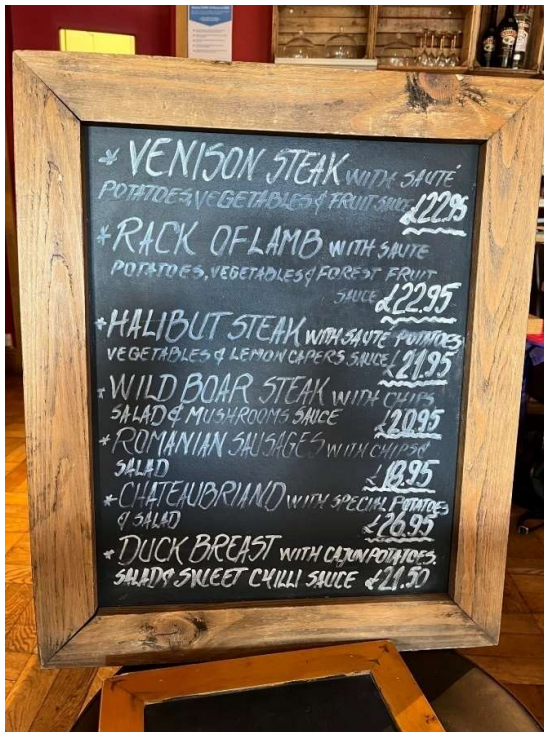 * VENISON STEAK WITH SAUTÉ
POTATOES, VEGETABLES & FRUIT SAUCE £22.95
* RACK OF LAMB WITH SAUTE
POTATOES, VEGETABLES & FOREST FRUIT
SAUCE £22.95
* HALIBUT STEAK WITH SAUTÉ POTATOES
VEGETABLES & LEMON CAPERS SAUCE £21.95
* WILD BOAR STEAK WITH CHIPS
SALAD & MUSHROOMS SAUCE £20.95
* ROMANIAN SAUSAGES WITH CHIPS &
SALAD £18.95
* CHATEAUBRIAND WITH SPECIAL POTATOES
& SALAD £26.95
* DUCK BREAST WITH CAJUN POTATOES.
SALAD & SWEET CHILLI SAUCE £21.50